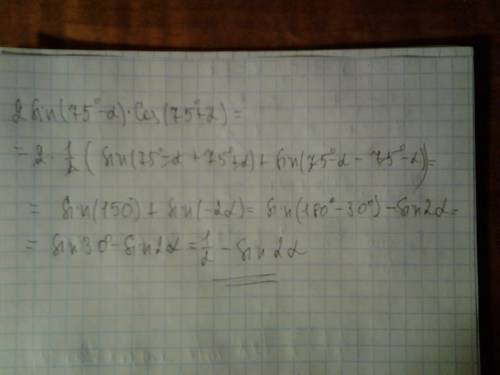 2 sin(75°-α)·cos(75°+α)=
=2·1/2(sin(75°-α+75°+α)+sin(75°-α-75°-α))=
= sin(150°)+sin(-2α)= sin(180°-30°)-sin2α=
= sin30°-sin2α=1/2-sin2α